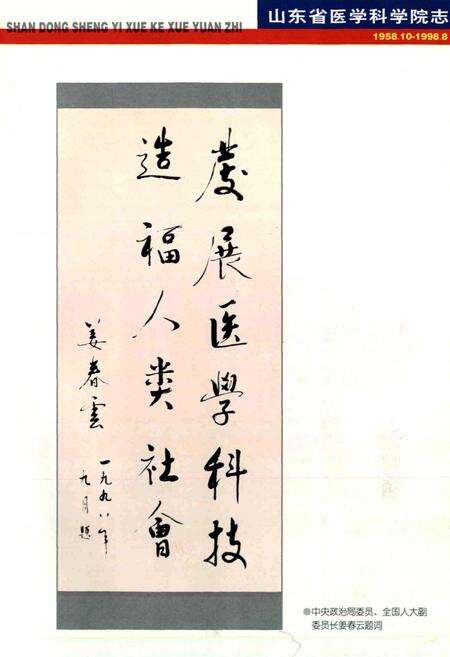 SHAN DONG SHENG YI XUE KE XUE YUAN ZHI
山东省医学科学院志
1958.10-1998.8
发展医学科技
造福人类社会
姜春雲
一九九八年
九月题
中央政治局委员、全国人大副
委员长姜春云题词